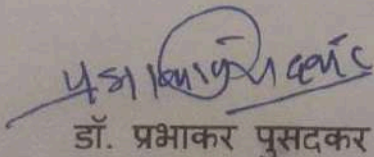 डॉ. प्रभाकर पुसदकर